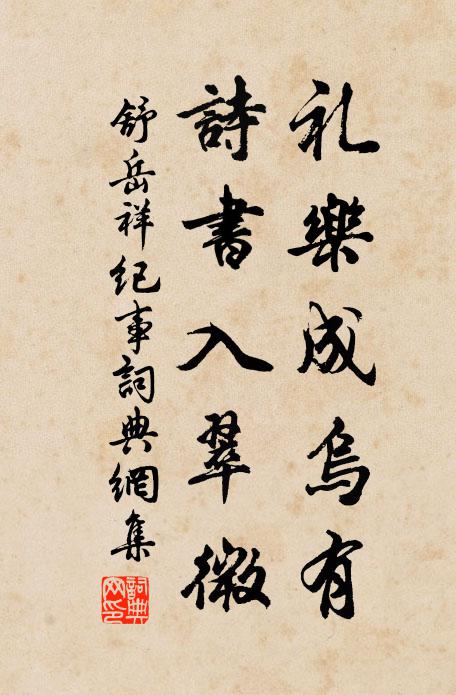 礼樂成烏有
詩書入翠微
舒岳祥紀事詞典網集
詞典网印